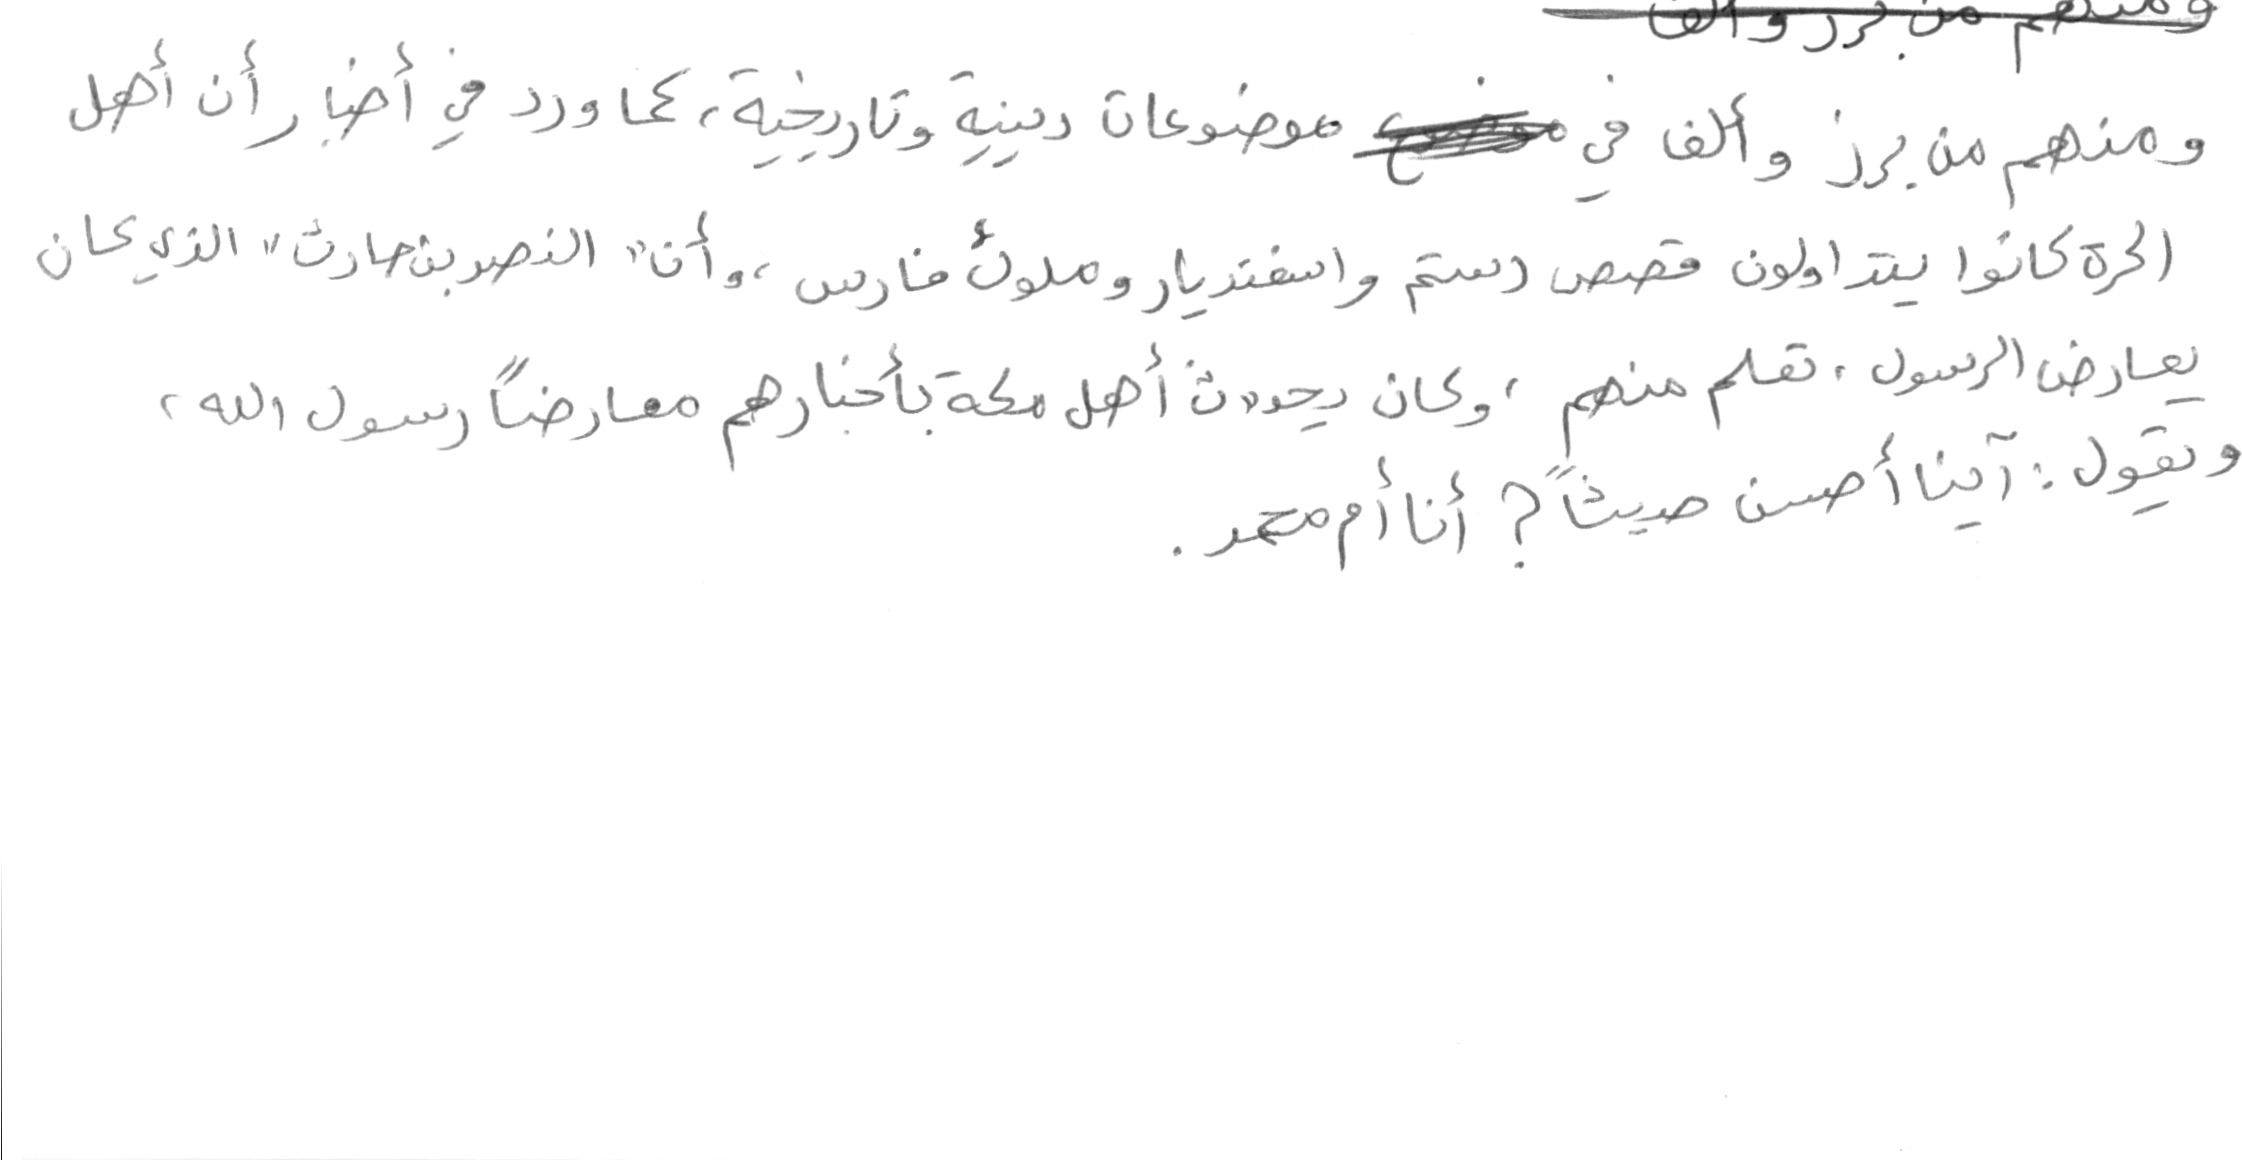 ومنهم من برز وألف
ومنهم من برز وألف في موضوعات دينية وتاريخية، كما ورد في أخبار أن أهل
الحرة كانوا يتداولون قصص رستم واسفنديار وملوك فارس، وأن "النضر بن حارث" الذي كان
يعارض الرسول، تعلم منهم، وكان يحدث أهل مكة بأخبارهم معارضاً رسول الله،
ويقول: آينا أحسن حديثاً؟ أنا أم محمد.